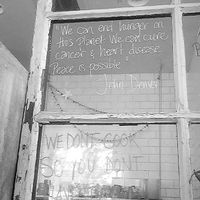 "We can end hunger on
this planet. We can cure
cancer & heart disease.
Peace is possible"
John Denver
WE DON'T COOK
SO YOU DON'T